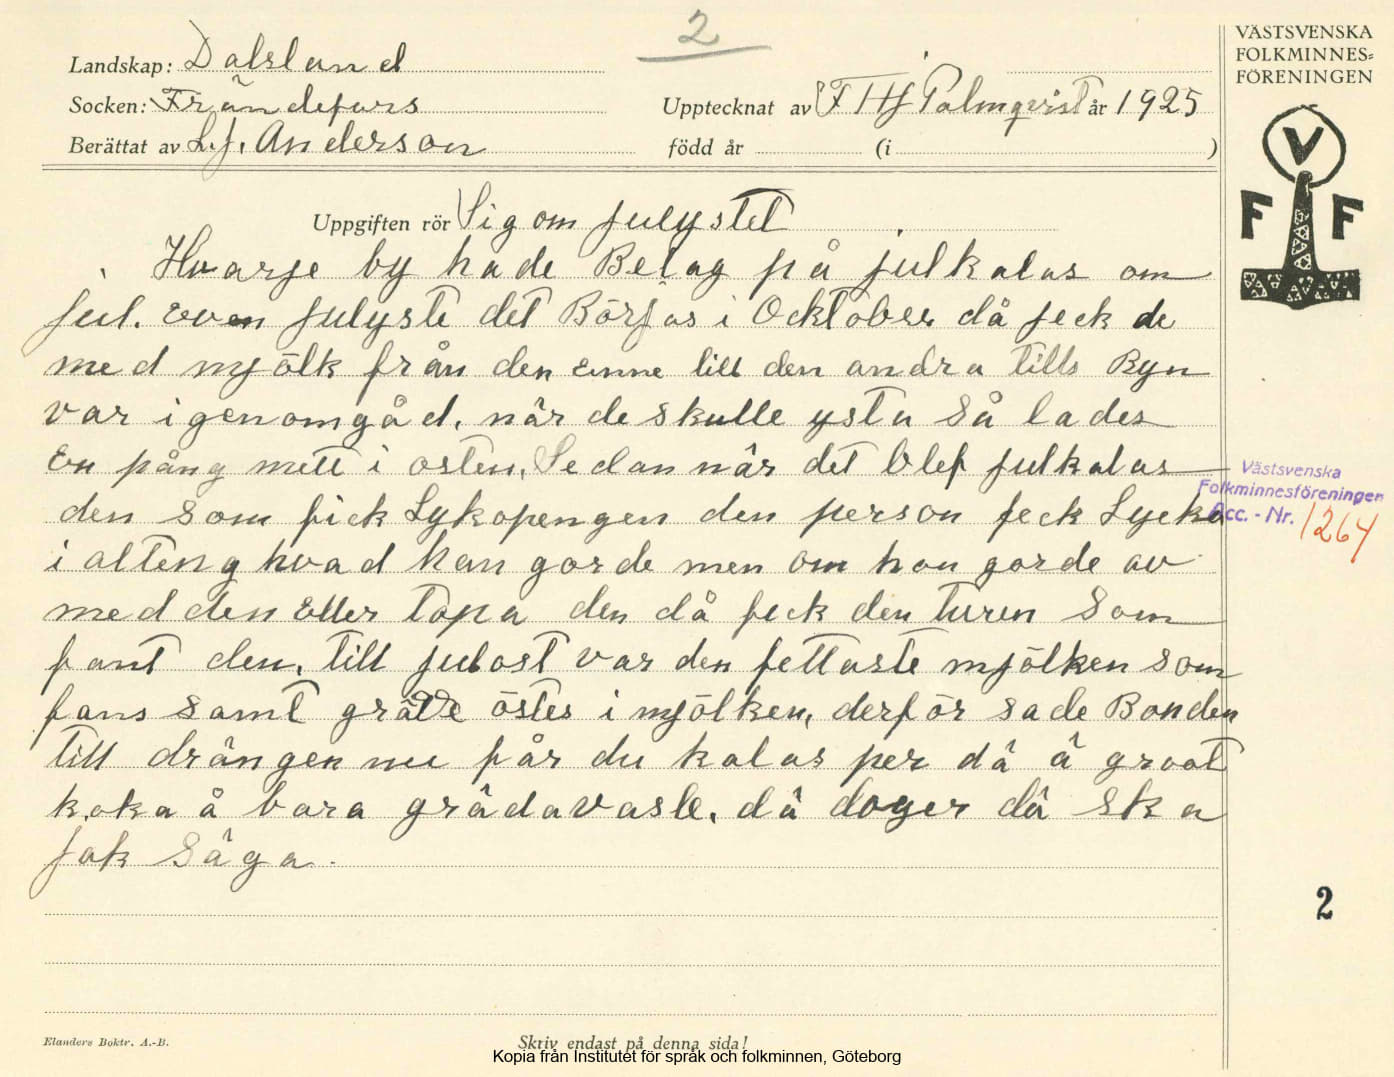 2
VÄSTSVENSKA
FOLKMINNES=
FÖRENINGEN
Landskap: Dalsland
Socken: Frändefors
Upptecknat av F Hj Palmqvist år 1925
Berättat av L.J. Anderson
född år (i )
V
F F
Uppgiften rör Sig om julystet
Hvarje by hade Belag på julkalas om
jul. även julyste det Börjas i Ocktober då jeck de
med mjölk från den Enne till den andra tills Byn
var igenomgåd. når de skulle ysta så lades
En pång mett i osten, Sedan når det blef julkalas
den som fick Lykopengen den person feck Lycka
i alteng hvad han gorde men om hon gorde av
med den Eller tapa den då feck den turen som
fant den. till julost var den fettaste mjölken som
fans samt grädde östes i mjölken, derför sade Bonden
till drängen nu får du kalas per då å grööt
koka å bara grådavasle. då doger då ska
jak såga.
Västsvenska
Folkminnesföreningen
Acc. - Nr. 1264
2
Elanders Boktr. A.-B.
Skriv endast på denna sida!
Kopia från Institutet för språk och folkminnen, Göteborg